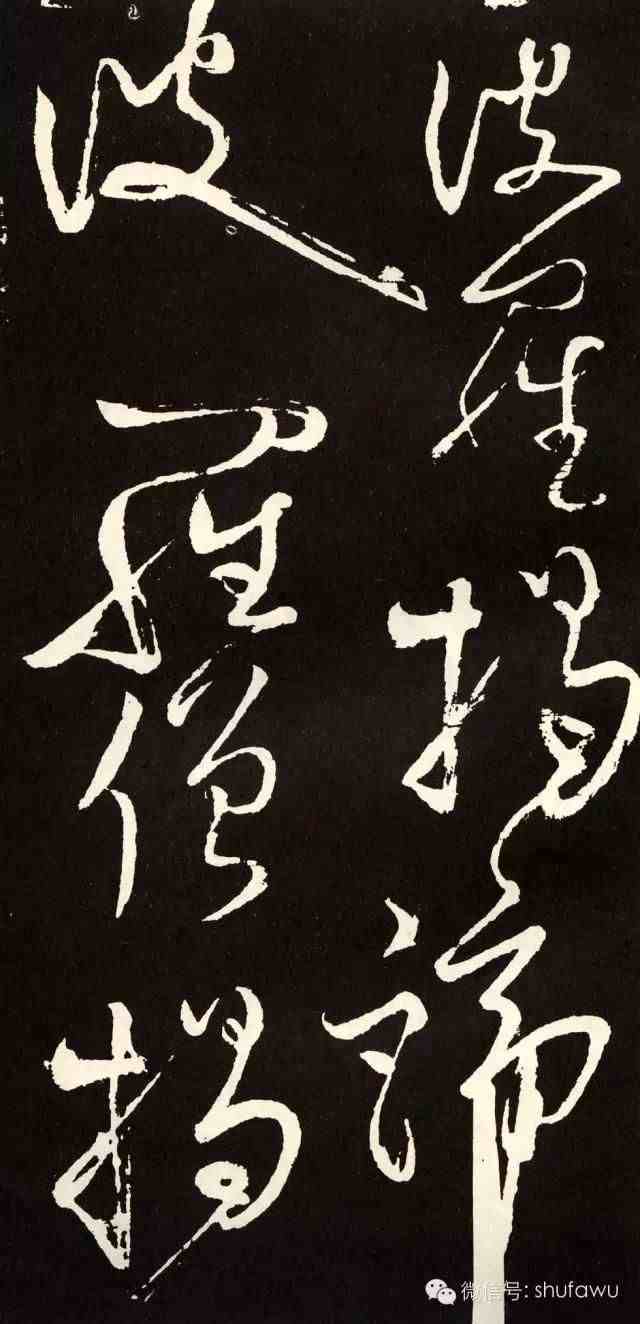 波羅揭諦
波羅僧揭
微信号: shufawu